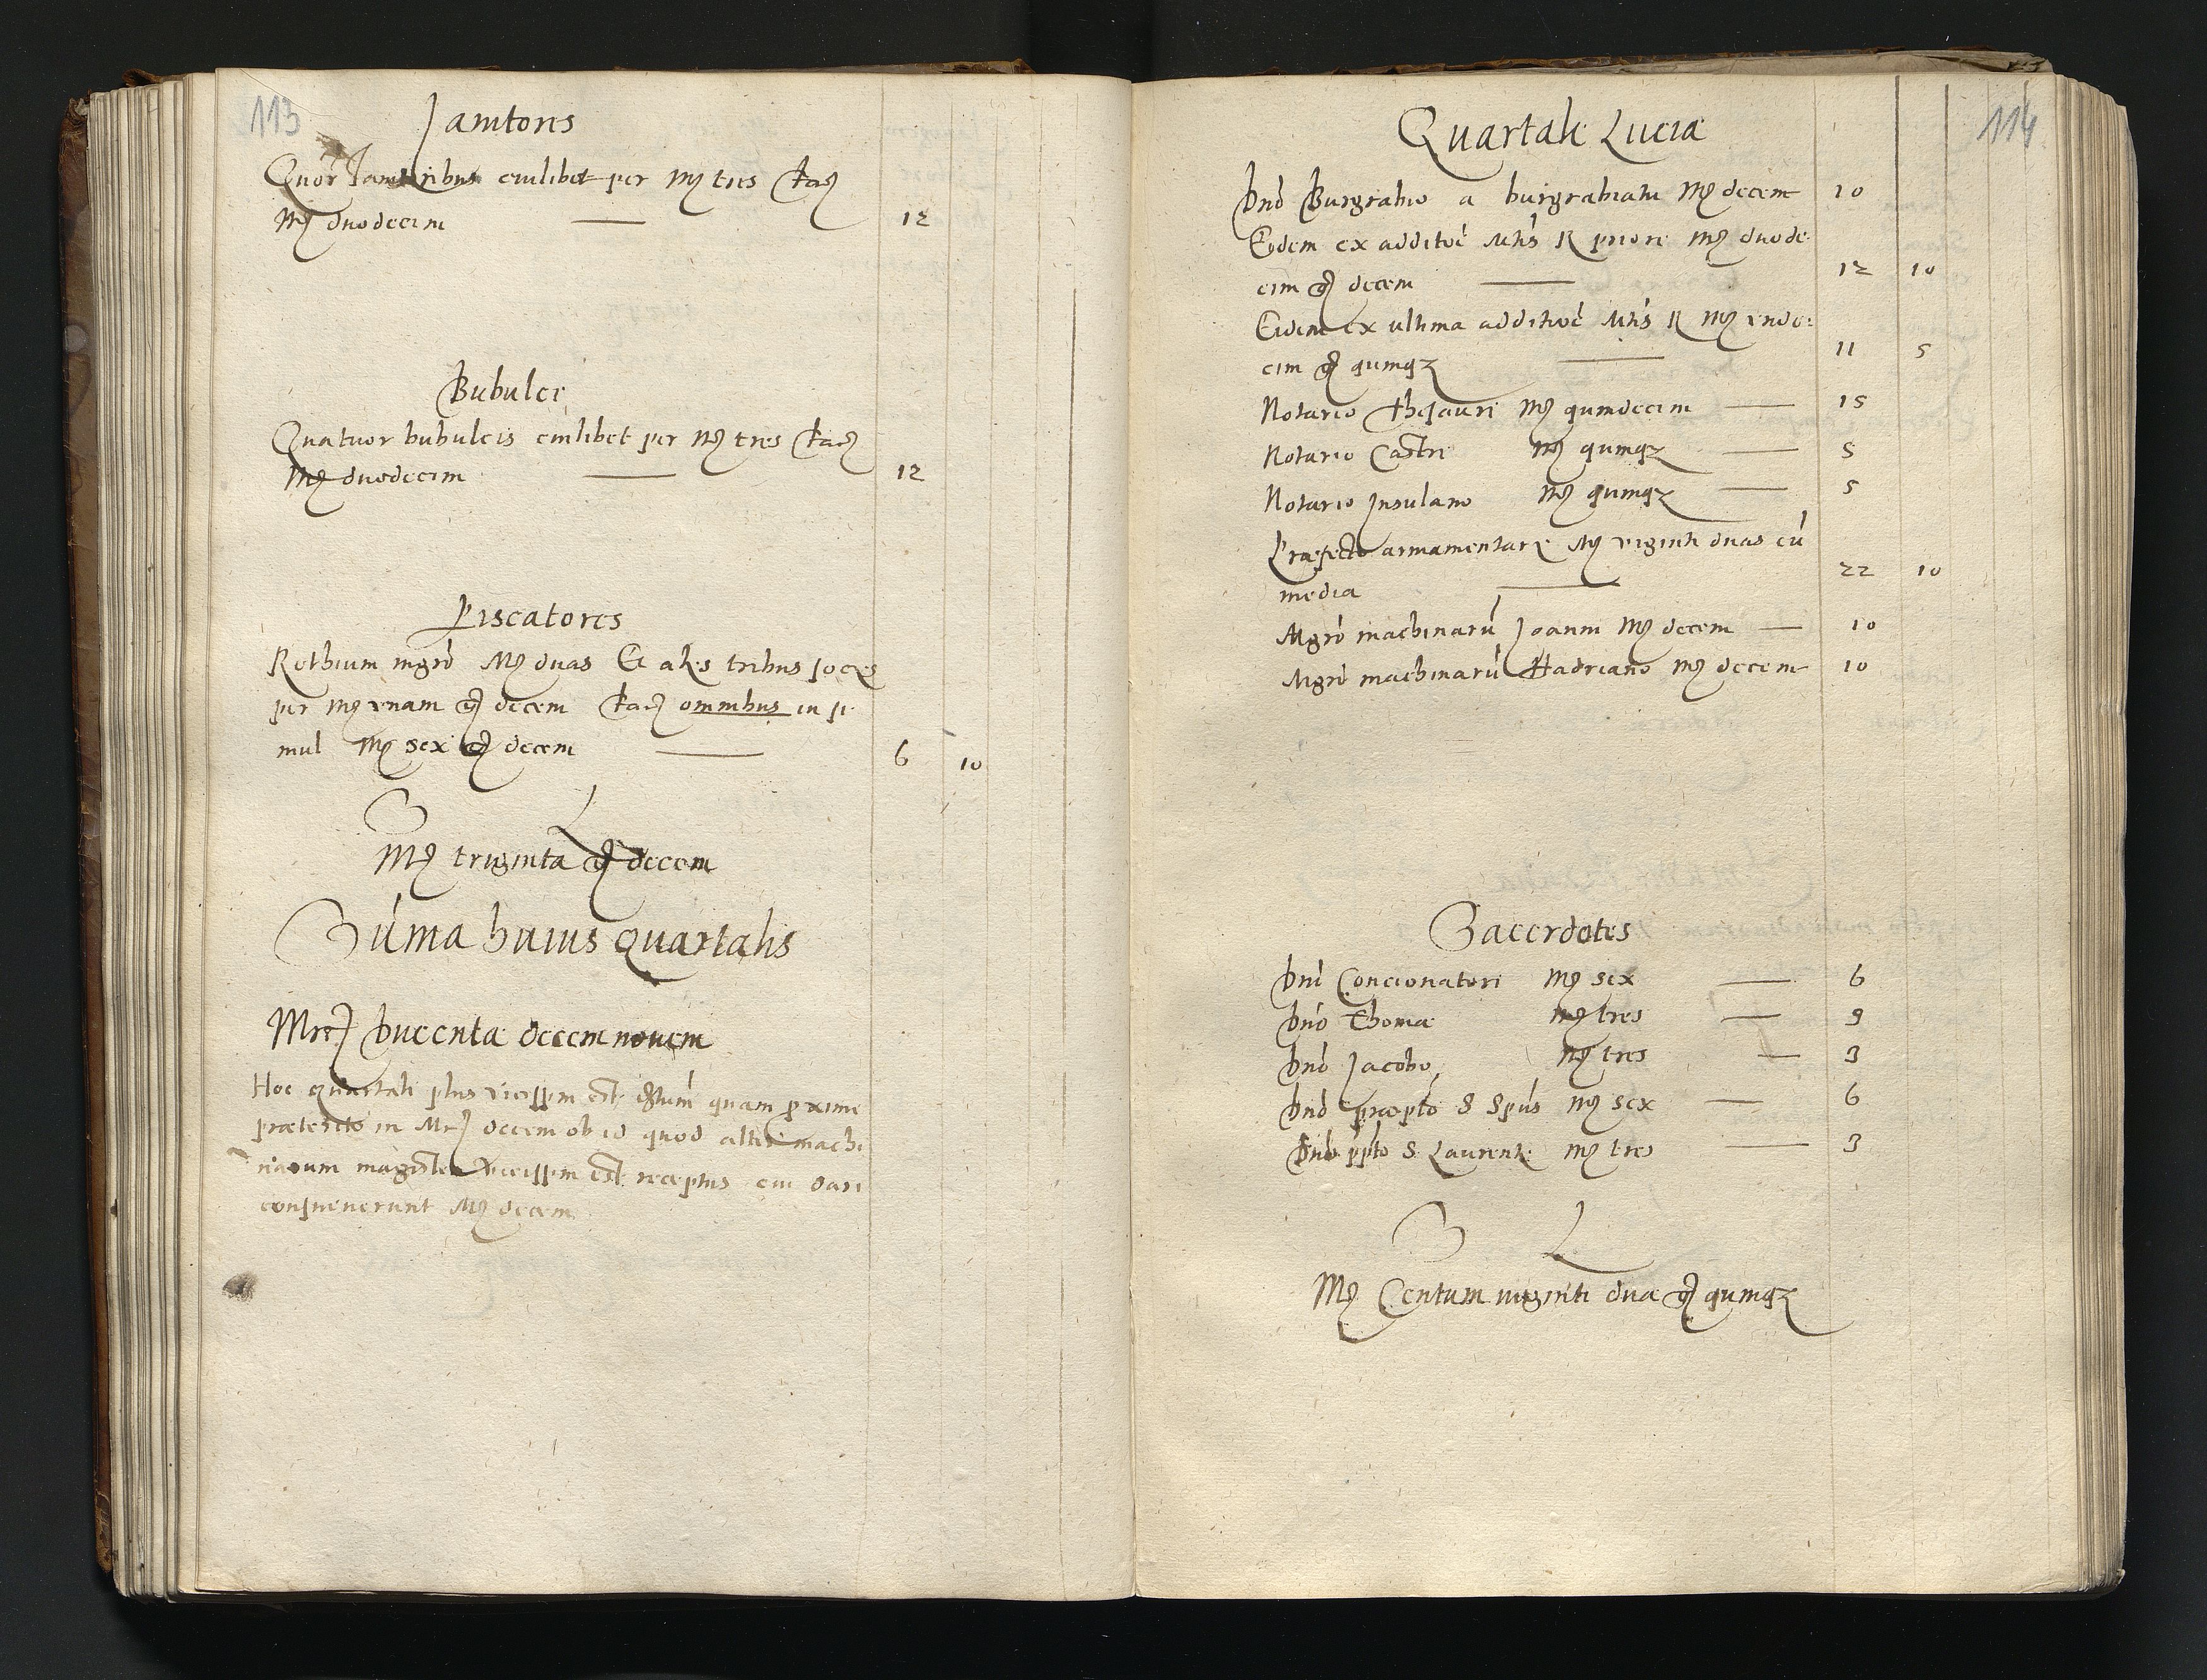 113
Janitores
Quor Janitoribus cuilibet per Mr tres facit
Mr duodecim — 12
Bubulci
Quatuor bubulcis cuilibet per Mr tres facit
Mr duodecim — 12
Piscatores
Rethium mgro Mr duas Et alys tribus socys
per Mr vnam g decem facit omnibus in si
mul Mr sex g decem — 6 10
S L
Mr triginta g decem
Sūma huius quartalis
Mrc ducenta decem novem
Hoc quartali plus vicissim est quam proxime
præterito in Mrc decem ob id quod alter machi
narum magister vicissim est receptus cui dari
consueuerunt Mr decem
114
Quartale Lucia
Dnō Burgrabio a burgrabiatu Mr decem 10
Eidem ex additōē Mtis R priore Mr duode
cim g decem — 12 10
Eidem ex ultima additōē Mtis R Mr vnde:
cim g quinqz — 11 5
Notario thesauri Mr quindecim — 15
Notario Castri Mr quinqz — 5
Notario Insulano Mr quinqz — 5
Præfecto armamentary Mr viginti duas cū
media — 22 10
Mgrō machinarū Joanni Mr decem — 10
Mgrō machinarū Hadriano Mr decem 10
Sacerdotes
Dnō Concionatori Mr sex — 6
Dnō Thomæ Mr tres — 3
Dnō Jacobo Mr tres — 3
Dnō præptō S Spūs Mr sex — 6
Dnō ppto S. Laurenty Mr tres — 3
S L
Mr Centum viginti dua g quinqz